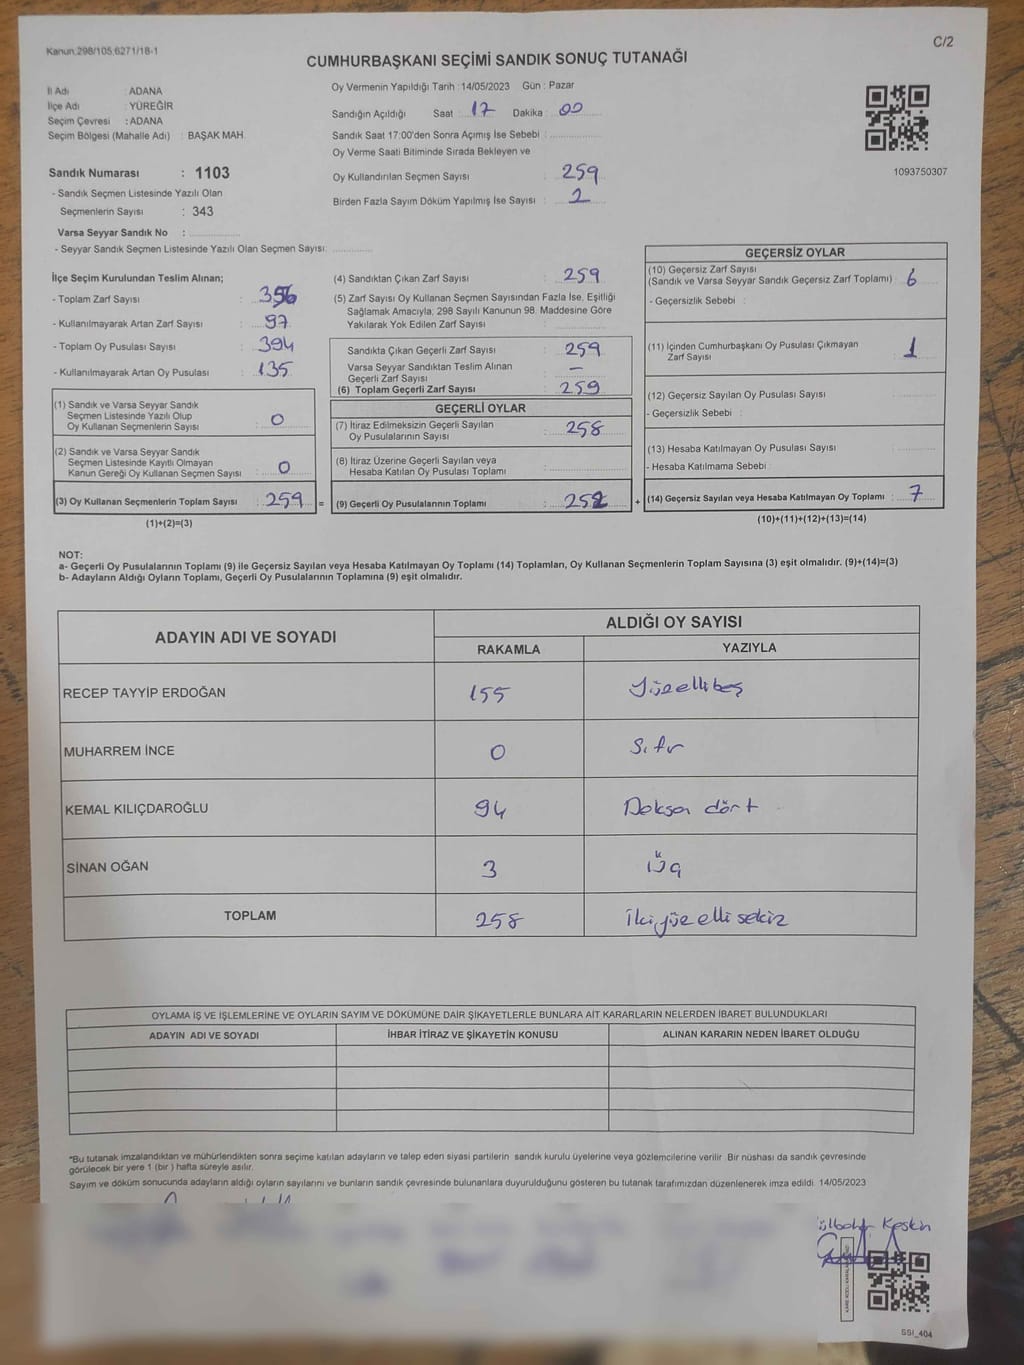 Kanun.298/105,6271/18-1
C/2
CUMHURBAŞKANI SEÇİMİ SANDIK SONUÇ TUTANAĞI
İl Adı : ADANA
İlçe Adı : YÜREĞİR
Seçim Çevresi : ADANA
Seçim Bölgesi (Mahalle Adı) : BAŞAK MAH.
Sandık Numarası : 1103
- Sandık Seçmen Listesinde Yazılı Olan
Seçmenlerin Sayısı : 343
Varsa Seyyar Sandık No :
- Seyyar Sandık Seçmen Listesinde Yazılı Olan Seçmen Sayısı:
Oy Vermenin Yapıldığı Tarih : 14/05/2023 Gün : Pazar
Sandığın Açıldığı Saat : 17 Dakika : 00
Sandık Saat 17:00'den Sonra Açımış İse Sebebi :
Oy Verme Saati Bitiminde Sırada Bekleyen ve
Oy Kullandırılan Seçmen Sayısı : 259
Birden Fazla Sayım Döküm Yapılmış İse Sayısı : 2
1093750307
İlçe Seçim Kurulundan Teslim Alınan;
- Toplam Zarf Sayısı : 356
- Kullanılmayarak Artan Zarf Sayısı : 97
- Toplam Oy Pusulası Sayısı : 394
- Kullanılmayarak Artan Oy Pusulası : 135
(1) Sandık ve Varsa Seyyar Sandık
Seçmen Listesinde Yazılı Olup
Oy Kullanan Seçmenlerin Sayısı : 0
(2) Sandık ve Varsa Seyyar Sandık
Seçmen Listesinde Kayıtlı Olmayan
Kanun Gereği Oy Kullanan Seçmen Sayısı : 0
(3) Oy Kullanan Seçmenlerin Toplam Sayısı : 259 =
(1)+(2)=(3)
(4) Sandıktan Çıkan Zarf Sayısı : 259
(5) Zarf Sayısı Oy Kullanan Seçmen Sayısından Fazla İse, Eşitliği
Sağlamak Amacıyla; 298 Sayılı Kanunun 98. Maddesine Göre
Yakılarak Yok Edilen Zarf Sayısı :
Sandıkta Çıkan Geçerli Zarf Sayısı : 259
Varsa Seyyar Sandıktan Teslim Alınan
Geçerli Zarf Sayısı : —
(6) Toplam Geçerli Zarf Sayısı : 259
GEÇERLİ OYLAR
(7) İtiraz Edilmeksizin Geçerli Sayılan
Oy Pusulalarının Sayısı : 258
(8) İtiraz Üzerine Geçerli Sayılan veya
Hesaba Katılan Oy Pusulası Toplamı :
(9) Geçerli Oy Pusulalarının Toplamı : 252 +
GEÇERSİZ OYLAR
(10) Geçersiz Zarf Sayısı
(Sandık ve Varsa Seyyar Sandık Geçersiz Zarf Toplamı) : 6
- Geçersizlik Sebebi :
(11) İçinden Cumhurbaşkanı Oy Pusulası Çıkmayan
Zarf Sayısı : 1
(12) Geçersiz Sayılan Oy Pusulası Sayısı :
- Geçersizlik Sebebi :
(13) Hesaba Katılmayan Oy Pusulası Sayısı :
- Hesaba Katılmama Sebebi :
(14) Geçersiz Sayılan veya Hesaba Katılmayan Oy Toplamı : 7
(10)+(11)+(12)+(13)=(14)
NOT:
a- Geçerli Oy Pusulalarının Toplamı (9) ile Geçersiz Sayılan veya Hesaba Katılmayan Oy Toplamı (14) Toplamları, Oy Kullanan Seçmenlerin Toplam Sayısına (3) eşit olmalıdır. (9)+(14)=(3)
b- Adayların Aldığı Oyların Toplamı, Geçerli Oy Pusulalarının Toplamına (9) eşit olmalıdır.
ADAYIN ADI VE SOYADI
ALDIĞI OY SAYISI
RAKAMLA YAZIYLA
RECEP TAYYİP ERDOĞAN 155 Yüzellibeş
MUHARREM İNCE 0 Sıfır
KEMAL KILIÇDAROĞLU 94 Doksan dört
SİNAN OĞAN 3 Üç
TOPLAM 258 İkiyüz elli sekiz
OYLAMA İŞ VE İŞLEMLERİNE VE OYLARIN SAYIM VE DÖKÜMÜNE DAİR ŞİKAYETLERLE BUNLARA AİT KARARLARIN NELERDEN İBARET BULUNDUKLARI
ADAYIN ADI VE SOYADI İHBAR İTİRAZ VE ŞİKAYETİN KONUSU ALINAN KARARIN NEDEN İBARET OLDUĞU
*Bu tutanak imzalandıktan ve mühürlendikten sonra seçime katılan adayların ve talep eden siyasi partilerin sandık kurulu üyelerine veya gözlemcilerine verilir. Bir nüshası da sandık çevresinde
görülecek bir yere 1 (bir ) hafta süreyle asılır.
Sayım ve döküm sonucunda adayların aldığı oyların sayılarını ve bunların sandık çevresinde bulunanlara duyurulduğunu gösteren bu tutanak tarafımızdan düzenlenerek imza edildi. 14/05/2023
Keskin
SSI_404